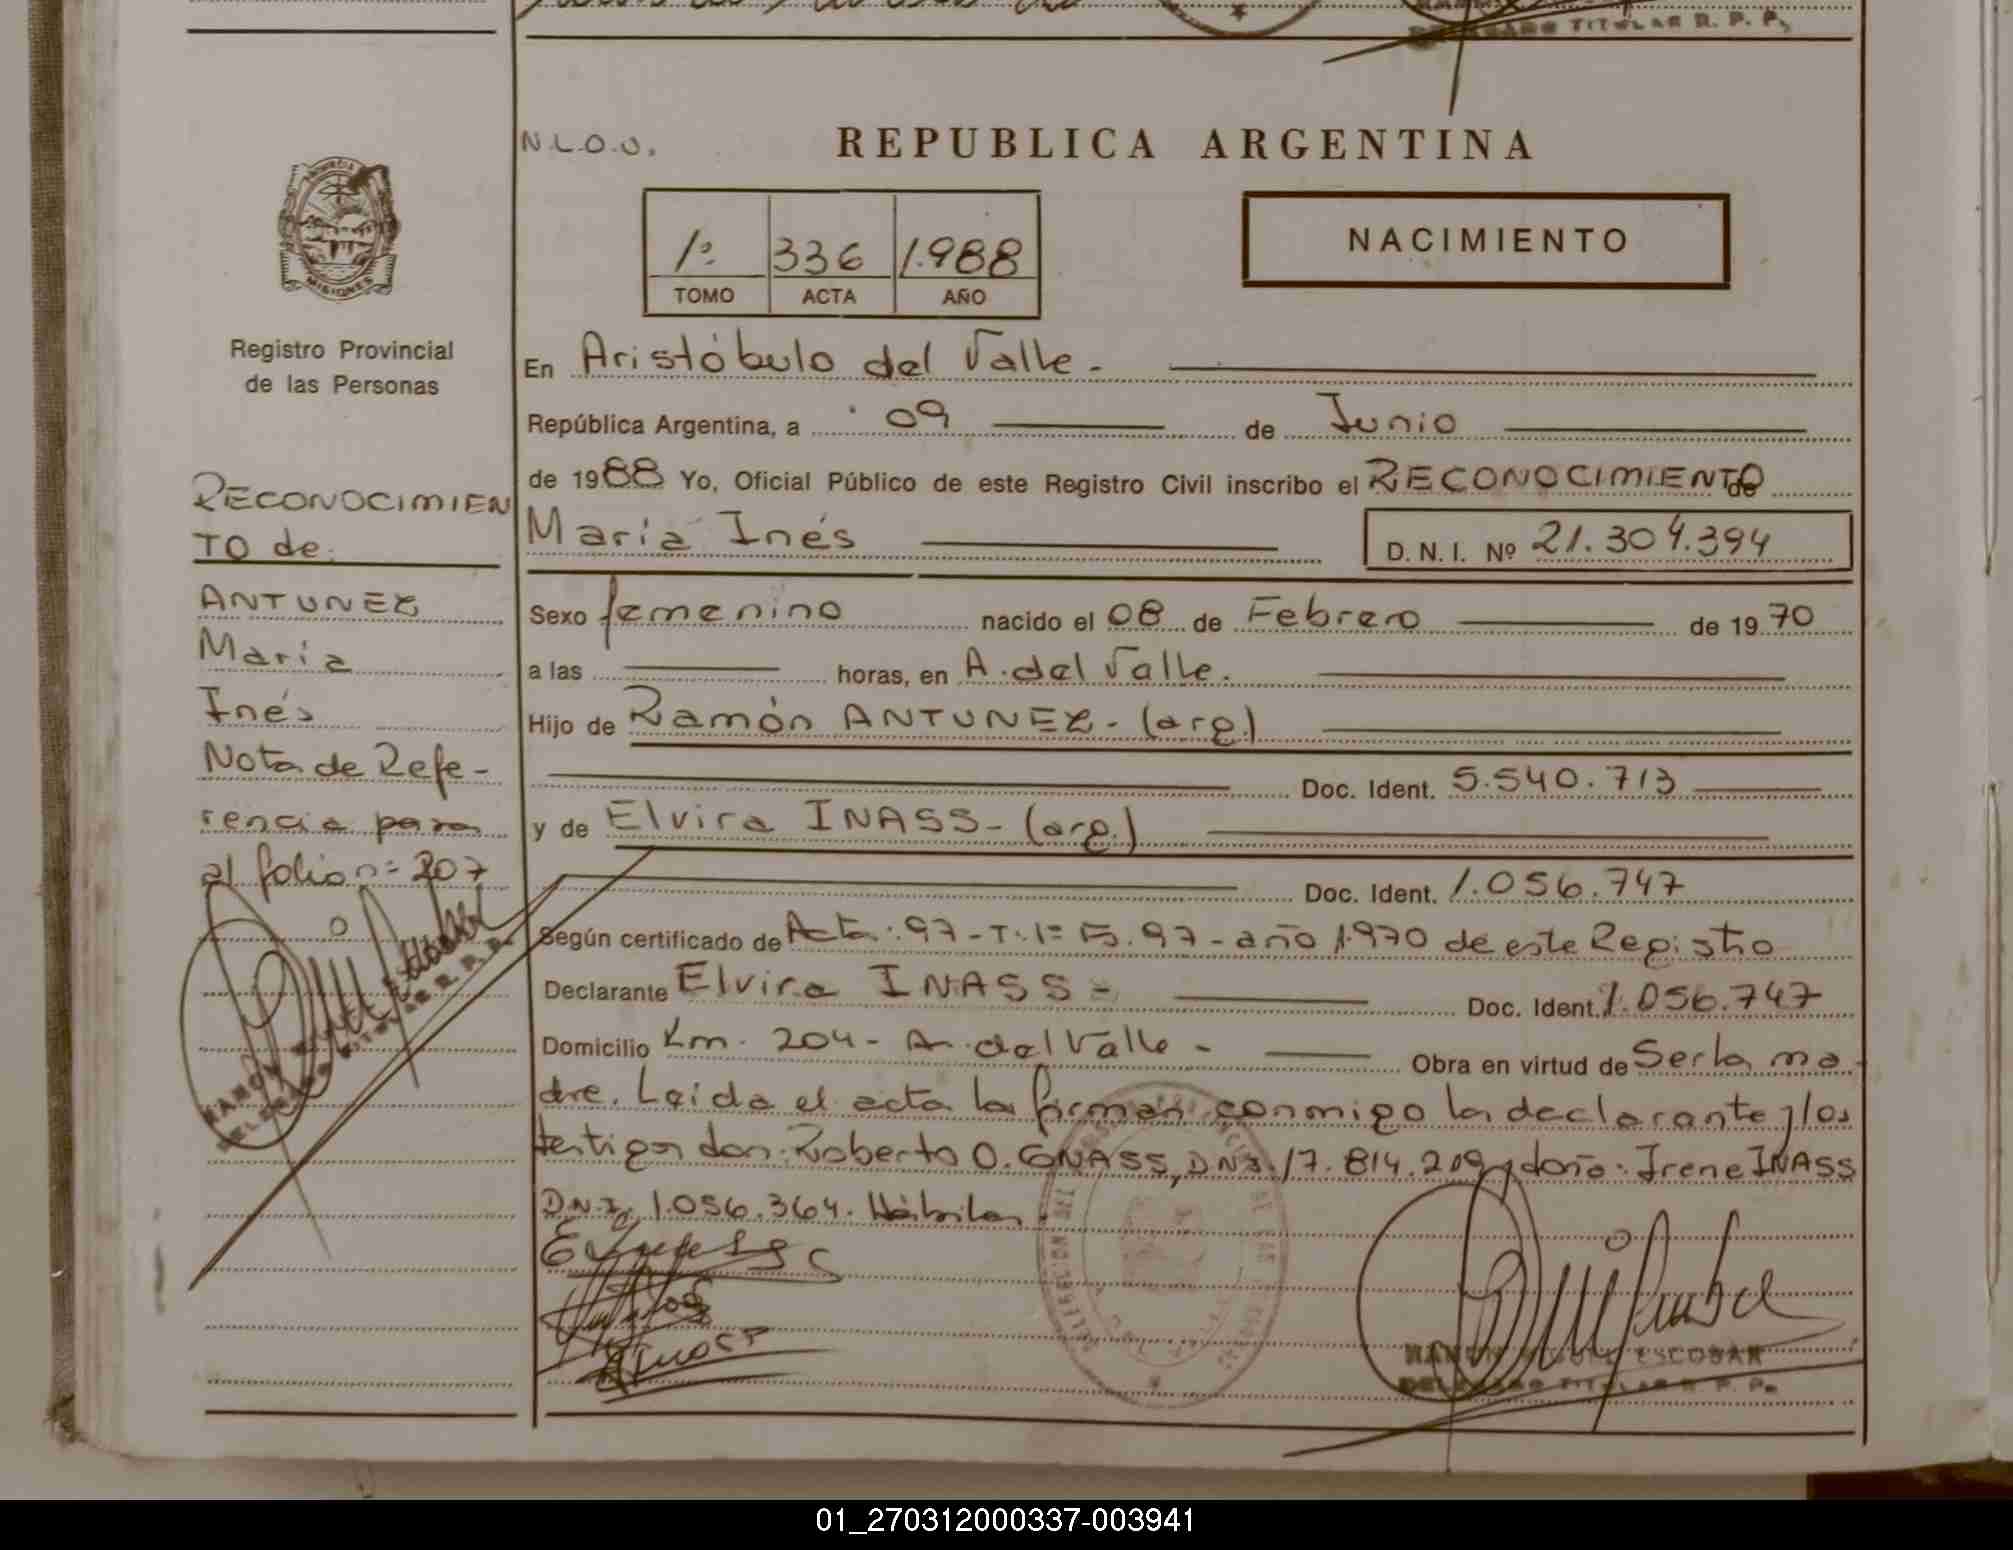 DELEGADO TITULAR R. P. P.
N.L.O.U.
REPUBLICA ARGENTINA
PROVINCIA
MISIONES
1º 336 1.988
TOMO ACTA AÑO
NACIMIENTO
Registro Provincial
de las Personas
En Aristóbulo del Valle.-
República Argentina, a 09 de Junio
de 1988 Yo, Oficial Público de este Registro Civil inscribo el RECONOCIMIENTO de
María Inés D. N. I. Nº 21.304.394
Sexo femenino nacido el 08 de Febrero de 1970
a las horas, en A. del Valle.
Hijo de Ramón ANTUNEZ - (arg.)
Doc. Ident. 5.540.713
y de Elvira INASS - (arg.)
Doc. Ident. 1.056.747
Según certificado de Acta: 97 - T. 1º F. 97 - año 1970 de este Registro
Declarante Elvira INASS - Doc. Ident. 1.056.747
Domicilio Km. 204 - A. del Valle - Obra en virtud de Ser la ma-
dre. Leida el acta la firman conmigo la declarante y los
testigos don: Roberto O. GNASS, DNI. 17.814.209 y doña: Irene INASS
DNI. 1.056.364. Hábiles.
RAMON MIGUEL ESCOBAR
DELEGADO TITULAR R. P. P.
RECONOCIMIEN
TO de:
ANTUNEZ
María
Inés
Nota de Refe-
rencia para
el folio n= 207
RAMON
DELEGADO TITULAR R. P. P.
01_270312000337-003941